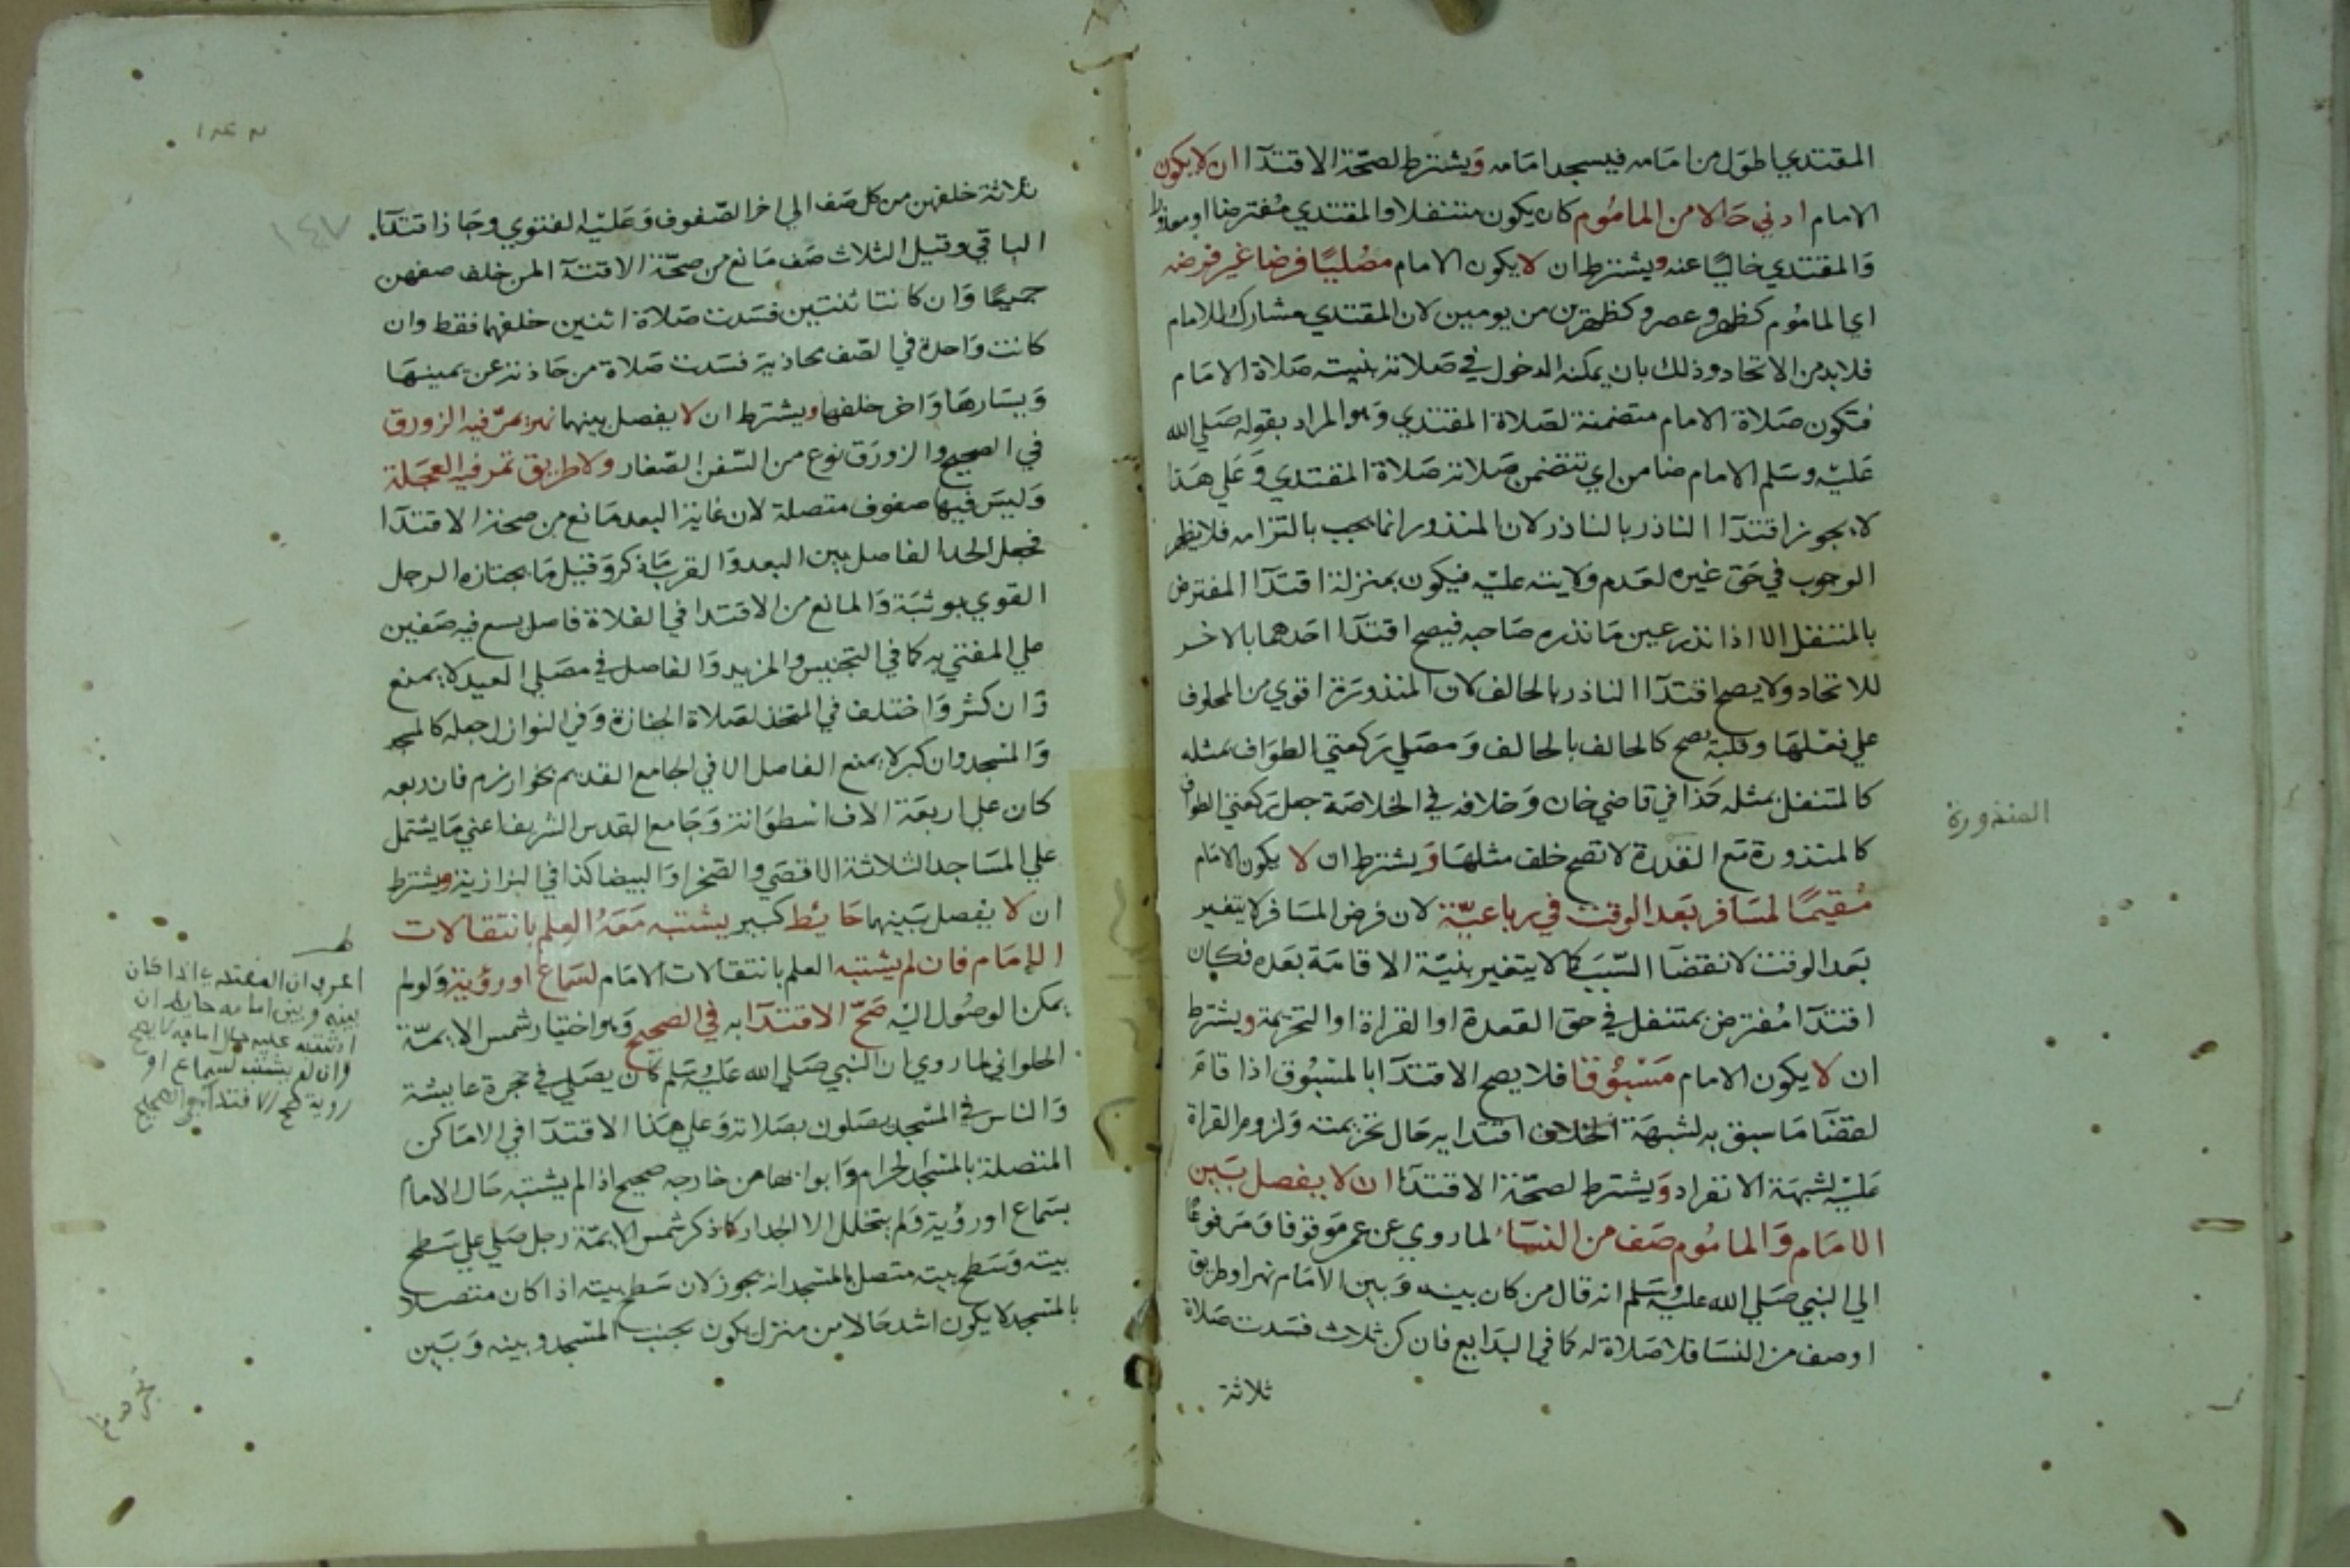 المقتدي اطول من امامه فيسجد امامه ويشترط لصحة الاقتدا ان لا يكون
الامام ادني حالا من الماموم كان يكون متنفلا والمقتدي مفترضا او معذورا
والمقتدي خاليا عنه ويشترط ان لا يكون الامام مصليا فرضا غير فرضه
اي الماموم كظهر وعصر وكظهرين من يومين لان المقتدي مشارك للامام
فلا بد من الاتحاد وذلك بان يمكنه الدخول في صلاته بنية صلاة الامام
فتكون صلاة الامام متضمنة لصلاة المقتدي وهو المراد بقوله صلي الله
عليه وسلم الامام ضامن اي تتضمن صلاته صلاة المقتدي وعلي هذا
لا يجوز اقتدا الناذر بالناذر لان المنذور انما يجب بالتزامه فلا يظهر
الوجوب في حق غيره لعدم ولايته عليه فيكون بمنزلة اقتدا المفترض
بالمتنفل الا اذا نذر عين ما نذره صاحبه فيصح اقتدا احدهما بالاخر
للاتحاد ولا يصح اقتدا الناذر بالحالف لان المنذورة اقوي من المحلوف
علي فعلها وقلبه يصح كالحالف بالحالف ومصلي ركعتي الطواف بمثله
كالمتنفل بمثله كذا في قاضي خان وخلافه في الخلاصة جعل ركعتي الطواف
كالمنذورة مع القدرة لا تصح خلف مثلها ويشترط ان لا يكون الامام
مقيما لمسافر بعد الوقت في رباعية لان فرض المسافر لا يتغير
بعد الوقت لانقضا السبب كما لا يتغير بنية الاقامة بعده فكان
اقتدا مفترض بمتنفل في حق القعدة او القراة او التحريمة ويشترط
ان لا يكون الامام مسبوقا فلا يصح الاقتدا بالمسبوق اذا قام
لقضا ما سبق به لشبهة الخلاف اقتدايه حال تحريمته ولزوم القراة
عليه لشبهة الانفراد ويشترط لصحة الاقتدا ان لا يفصل بين
الامام والماموم صف من النساء لما روي عن عمر موقوفا ومرفوعا
الي النبي صلي الله عليه وسلم انه قال من كان بينه وبين الامام نهر او طريق
او صف من النسا فلا صلاة له كما في البدايع فان كن ثلاث فسدت صلاة
ثلاثة
المنذورة
١٤٧
ثلاثة خلفهن من كل صف الي اخر الصفوف وعليه الفتوي وجاز اقتدا
الباقي وقيل الثلاث صف مانع من صحة الاقتدا لمن خلف صفهن
جميعا وان كانتا ثنتين فسدت صلاة اثنين خلفهما فقط وان
كانت واحدة في الصف محاذية فسدت صلاة من حاذته عن يمينها
ويسارها واخر خلفها ويشترط ان لا يفصل بينهما نهر يمر فيه الزورق
في الصحيح والزورق نوع من السفن الصغار ولا طريق تمر فيه العجلة
وليس فيها صفوف متصلة لان غاية البعد مانع من صحة الاقتدا
فجعل الحد الفاصل بين البعد والقرب بما ذكر وقيل ما يجتازه الرجل
القوي بوثبة والمانع من الاقتدا في الفلاة فاصل يسع فيه صفين
علي المفتي به كما في التجنيس والمزيد والفاصل في مصلي العيد لا يمنع
وان كثر واختلف في المتخذ لصلاة الجنازة وفي النوازل جعله كالمسجد
والمسجد وان كبر لا يمنع الفاصل الا في الجامع القديم بخوارزم فان ربعه
كان علي اربعة الاف اسطوانة وجامع القدس الشريف اعني ما يشتمل
علي المساجد الثلاثة الاقصي والصخرا والبيضا كذا في البزازية ويشترط
ان لا يفصل بينهما حائط كبير يشتبه معه العلم بانتقالات
الامام فان لم يشتبه العلم بانتقالات الامام لسماع او رؤية ولو لم
يمكن الوصول اليه صح الاقتدا به في الصحيح وهو اختيار شمس الايمة
الحلواني لما روي ان النبي صلي الله عليه وسلم كان يصلي في حجرة عايشة
والناس في المسجد يصلون بصلاته وعلي هذا الاقتدا في الاماكن
المتصلة بالمسجد الحرام وابوابها من خارجه صحيح اذا لم يشتبه حال الامام
بسماع او رؤية ولم يتخلل الا الجدار كما ذكر شمس الايمة رجل صلي علي سطح
بيته وسطح بيته متصل بالمسجد انه يجوز لان سطح بيته اذا كان متصلا
بالمسجد لا يكون اشد حالا من منزل يكون بجنب المسجد وبينه وبين
اعرب ان المقتدي اذا كان
بينه وبين امامه حايط ان
اشتبه عليه حال امامه لا يصح
وان لم يشتبه لسماع او
روية صح الاقتدا في الصحيح